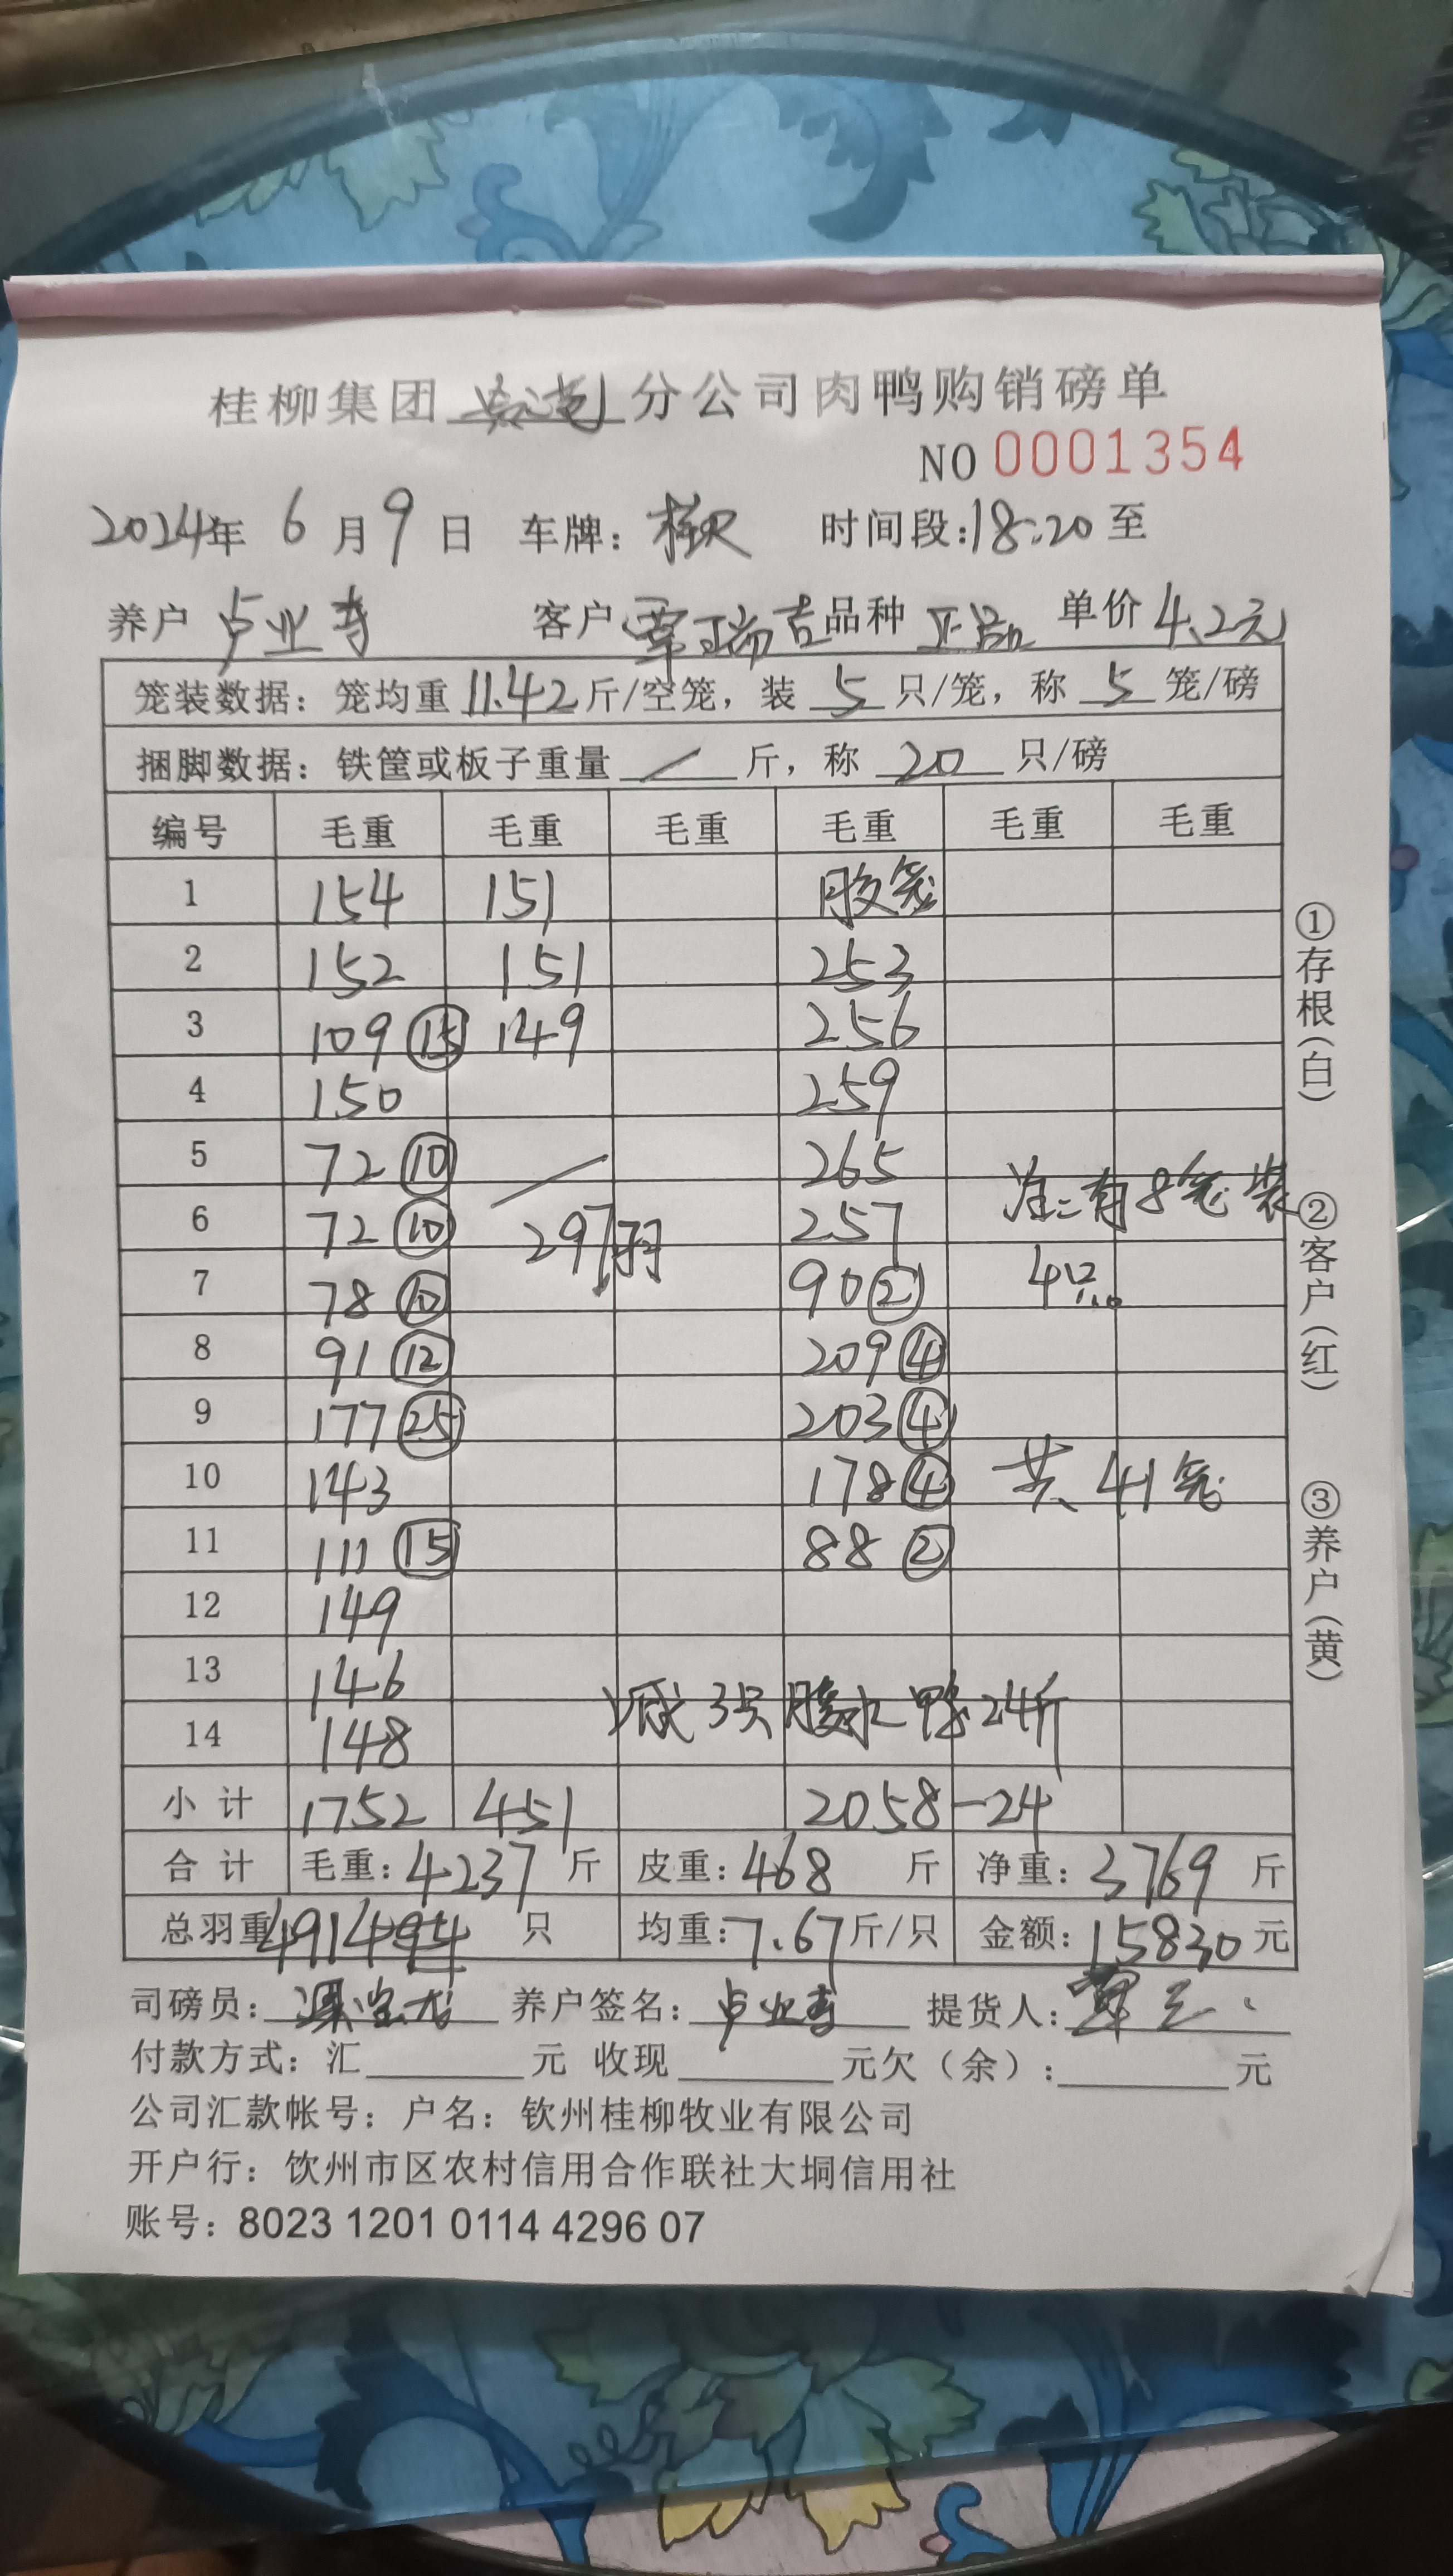 桂柳集团 分公司肉鸭购销磅单
NO 0001354
2024年 6月9日 车牌: 时间段:18:20至
养户 卢业寿 客户 覃瑞吉 品种 正品 单价 4.2元
笼装数据: 笼均重 11.42 斤/空笼, 装 5 只/笼, 称 5 笼/磅
捆脚数据: 铁筐或板子重量 / 斤, 称 20 只/磅
编号 毛重 毛重 毛重 毛重 毛重 毛重
1 154 151 胶笼
2 152 151 253
3 109 ⑮ 149 256
4 150 259
5 72 ⑩ / 265
6 72 ⑩ 297羽 257 注:有8笼装
7 78 ⑩ 90 ② 4只。
8 91 ⑫ 209 ④
9 177 ㉕ 203 ④
10 143 178 ④ 共41笼
11 111 ⑮ 88 ②
12 149
13 146
减3只胶水鸭24斤
14 148
小计 1752 451 2058-24
合计 毛重: 4237 斤 皮重: 468 斤 净重: 3769 斤
总羽重 491 494 只 均重: 7.67 斤/只 金额: 15830 元
司磅员: 养户签名: 卢业寿 提货人: 覃
付款方式: 汇 元 收现 元欠(余): 元
公司汇款帐号: 户名: 钦州桂柳牧业有限公司
开户行: 饮州市区农村信用合作联社大垌信用社
账号: 8023 1201 0114 4296 07
①存根(白)
②客户(红)
③养户(黄)